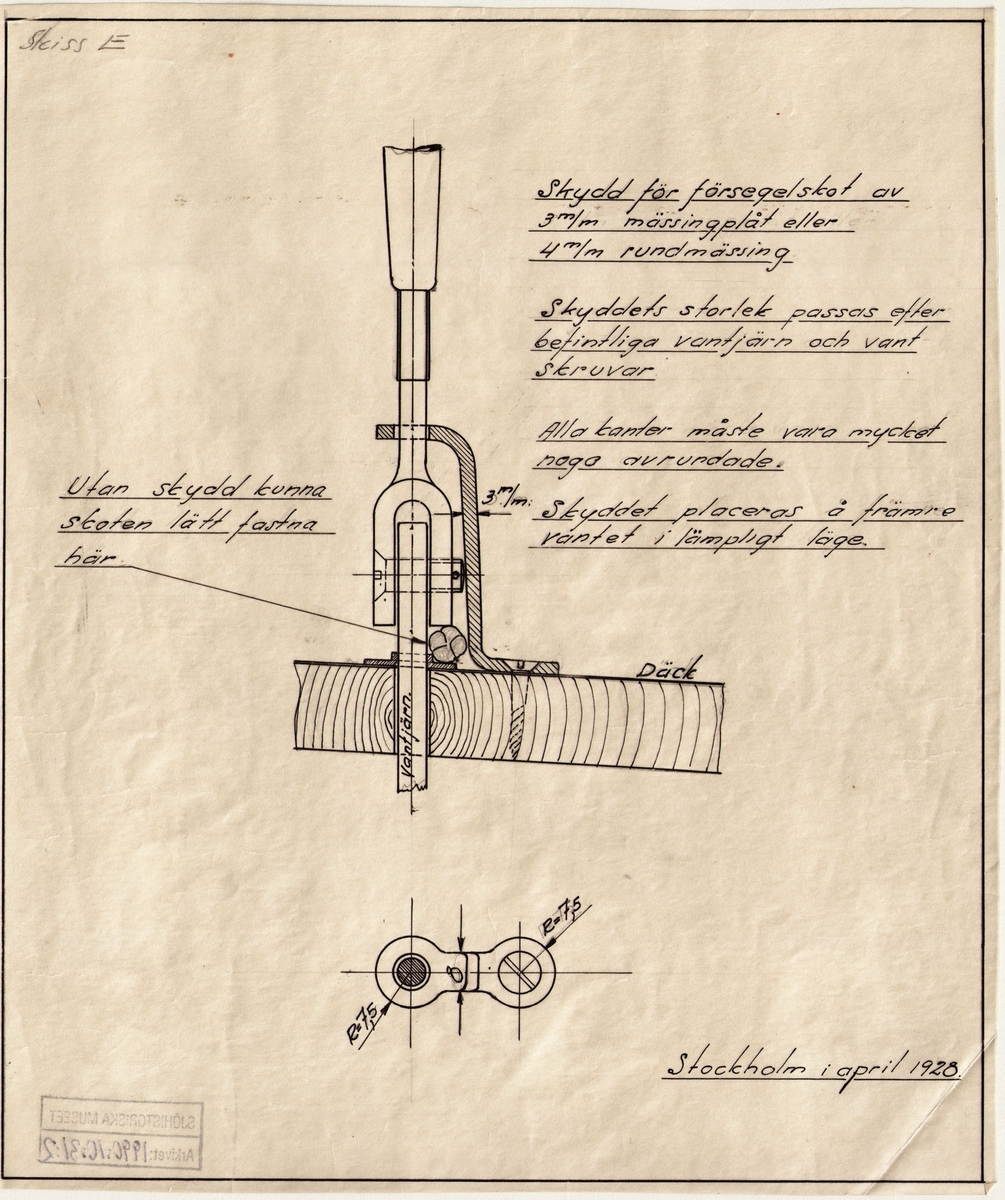 Skiss E
Skydd för försegelskot av
3 m/m mässingplåt eller
4 m/m rundmässing
Skyddets storlek passas efter
befintliga vantjärn och vant
skruvar
Alla kanter måste vara mycket
noga avrundade.
Utan skydd kunna
skoten lätt fastna
här.
3 m/m.
Skyddet placeras å främre
vantet i lämpligt läge.
Däck
Vantjärn.
R=7,5
8
R=7,5
Stockholm i april 1928.
SJÖHISTORISKA MUSEET
Arkivet: 1990:10:31:2